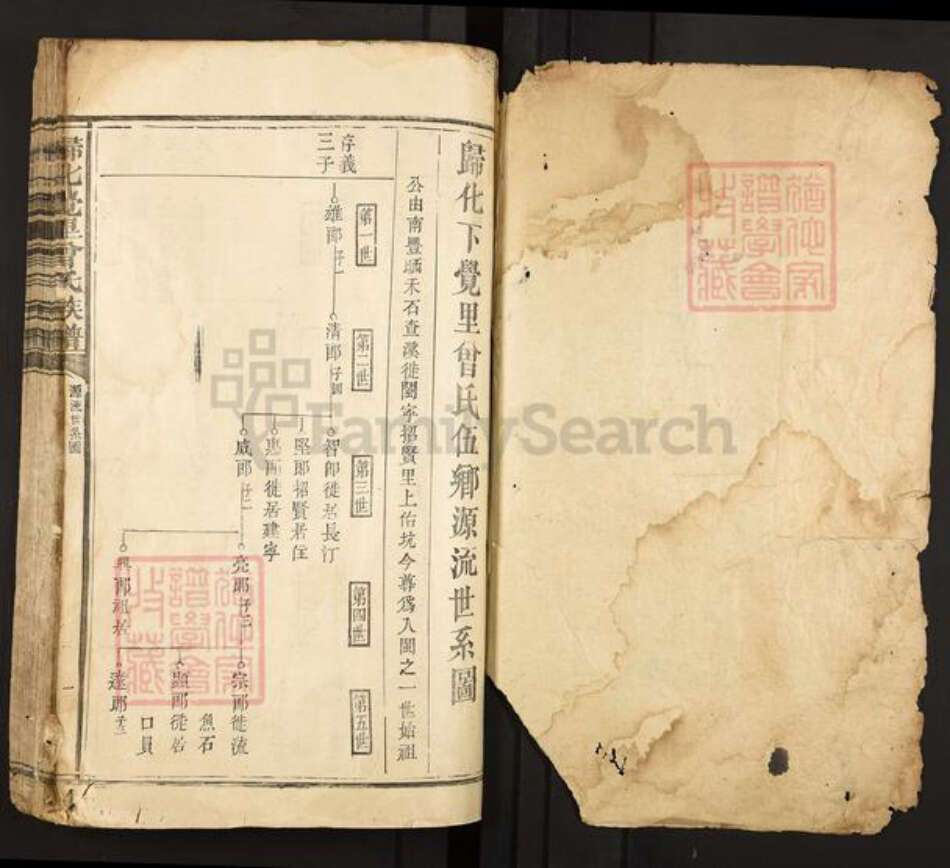 歸化下覺里曾氏伍鄉源流世系圖
公由南豐 禾石查溪徙閩寧招賢里上佑坑今尊為入閩之一世始祖
第一世
第二世
第三世
第四世
第五世
序義
三子
雄郎子一
清郎子四
智郎徙居長汀
堅郎招賢居住
忠郎徙居建寧
威郎子二
亮郎子三
興郎祖居
宗郎徙流
魚石
顯郎徙居
口員
達郎子三
歸化覺里曾氏族譜
源流世系圖
一
譜學會
收藏
譜學會
收藏
FamilySearch